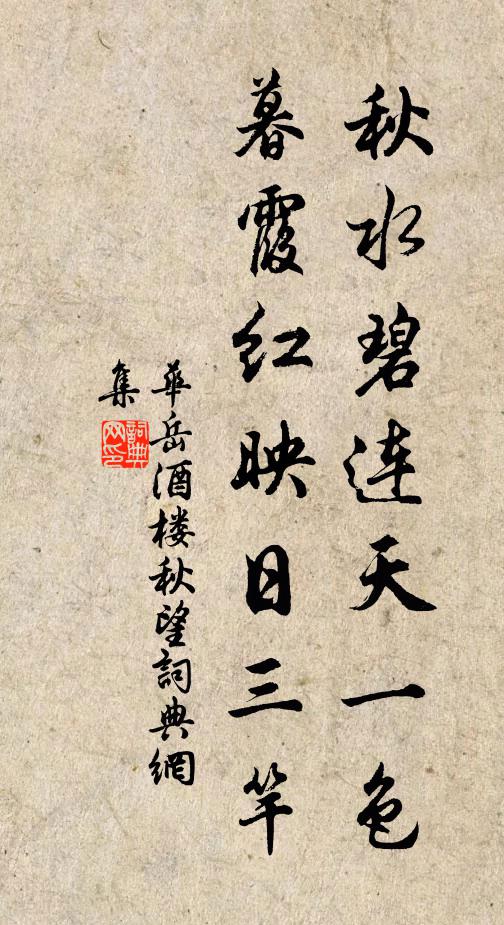 秋水碧连天一色
暮霞红映日三竿
華岳酒楼秋望詞典網
集
詞典
网印